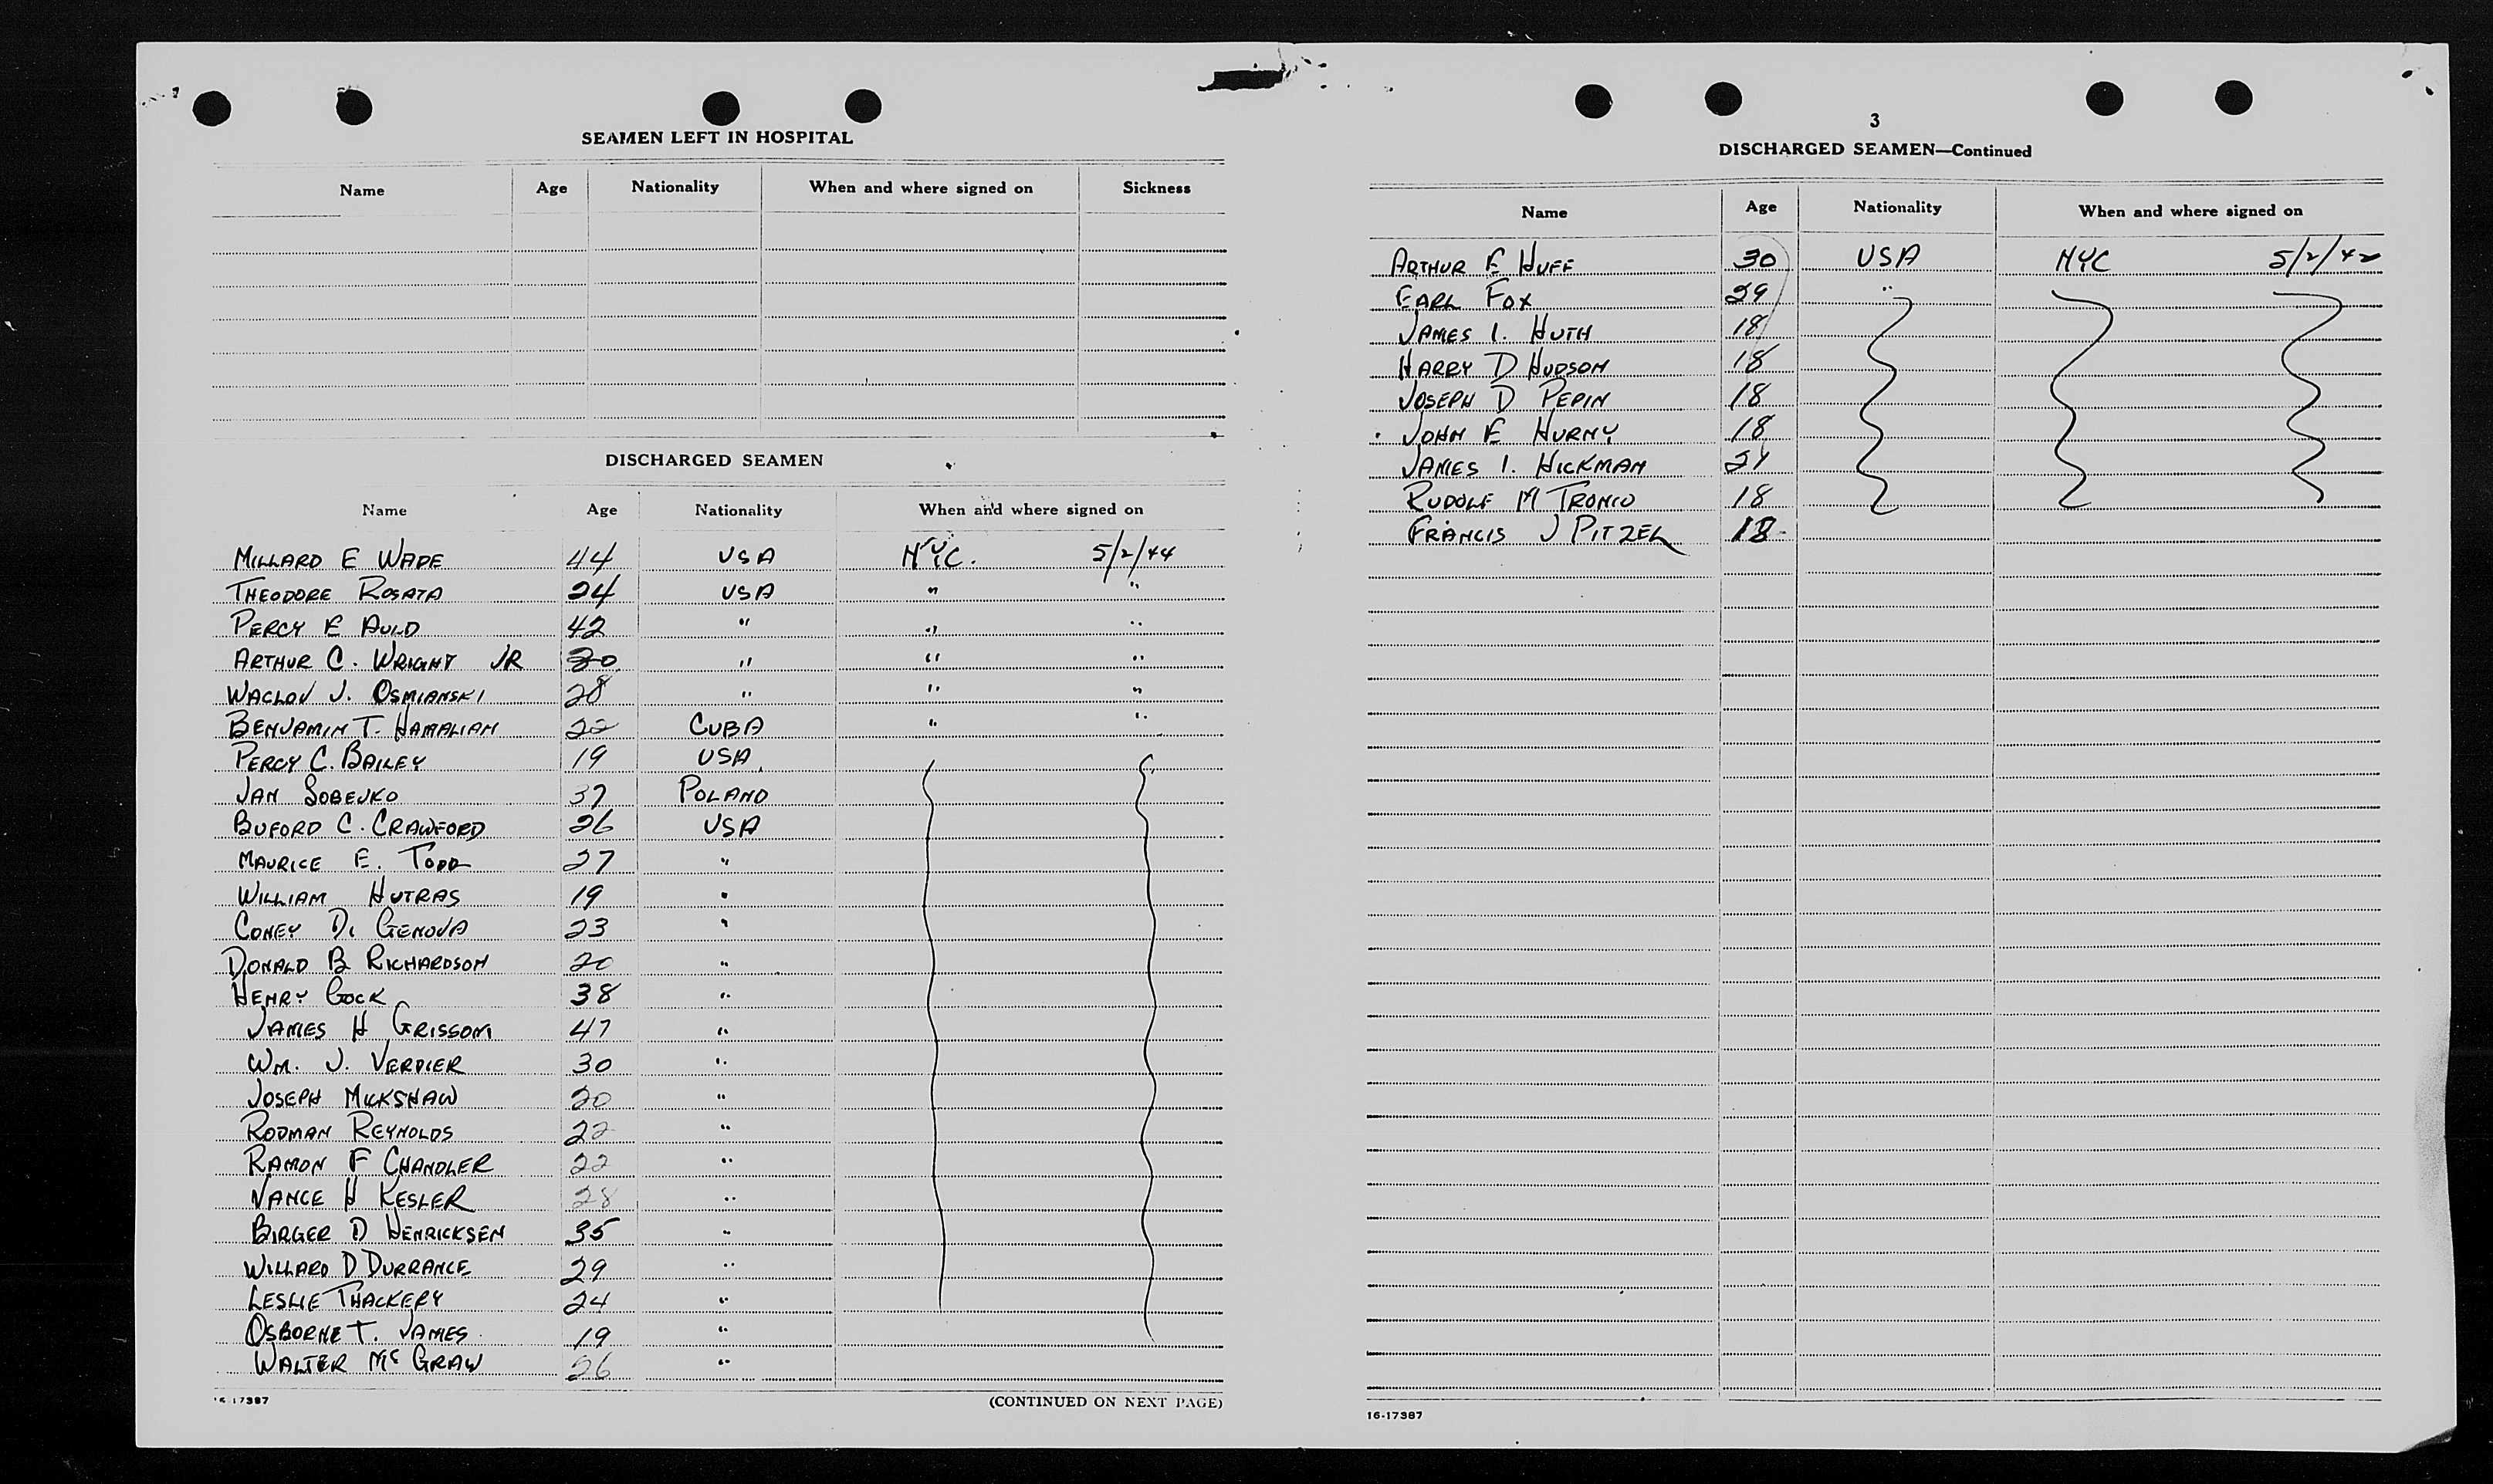 SEAMEN LEFT IN HOSPITAL
Name Age Nationality When and where signed on Sickness
DISCHARGED SEAMEN
Name Age Nationality When and where signed on
MILLARD E WADE 44 USA NYC. 5/2/44
THEODORE ROSATA 24 USA " "
PERCY E AULD 42 " " "
ARTHUR C. WRIGHT JR 20 " " "
WACLOV J. OSMIANSKI 28 " " "
BENJAMIN T. HAMALIAN 22 CUBA " "
PERCY C. BAILEY 19 USA
JAN SOBEJKO 37 POLAND
BUFORD C. CRAWFORD 26 USA
MAURICE E. TODD 27 "
WILLIAM HUTRAS 19 "
CONEY DI GENOVA 23 "
DONALD B RICHARDSON 20 "
HENRY GOCK 38 "
JAMES H GRISSOM 47 "
WM. J. VERDIER 30 "
JOSEPH MICKSHAW 20 "
RODMAN REYNOLDS 22 "
RAMON F CHANDLER 22 "
VANCE H KESLER 28 "
BIRGER D HENRICKSEN 35 "
WILLARD D DURRANCE 29 "
LESLIE THACKERY 24 "
OSBORNE T. JAMES 19 "
WALTER MC GRAW 26 "
16-17387 (CONTINUED ON NEXT PAGE)
3
DISCHARGED SEAMEN—Continued
Name Age Nationality When and where signed on
ARTHUR E HUFF 30 USA NYC 5/2/42
EARL FOX 29 "
JAMES I. HUTH 18
HARRY D HUDSON 18
JOSEPH D PEPIN 18
JOHN E HURNY 18
JAMES I. HICKMAN 24
RUDOLF M TRONIO 18
FRANCIS J PITZEL 18
16-17387